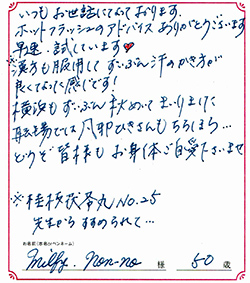 いつもお世話になっております。
ホットフラッシュのアドバイスありがとうございます
早速、試しています♥
※漢方も服用してずいぶん汗のかき方が
良くなった感じです!
横浜もずいぶん秋めいてまいりました
職場では風邪ひきさんもちらほら…
どうぞ皆様もお身体ご自愛くださいませ
※桂枝茯苓丸No.25
先生からすすめられて…
お名前(本名orペンネーム)
Milfy. Non-no 様 50 歳